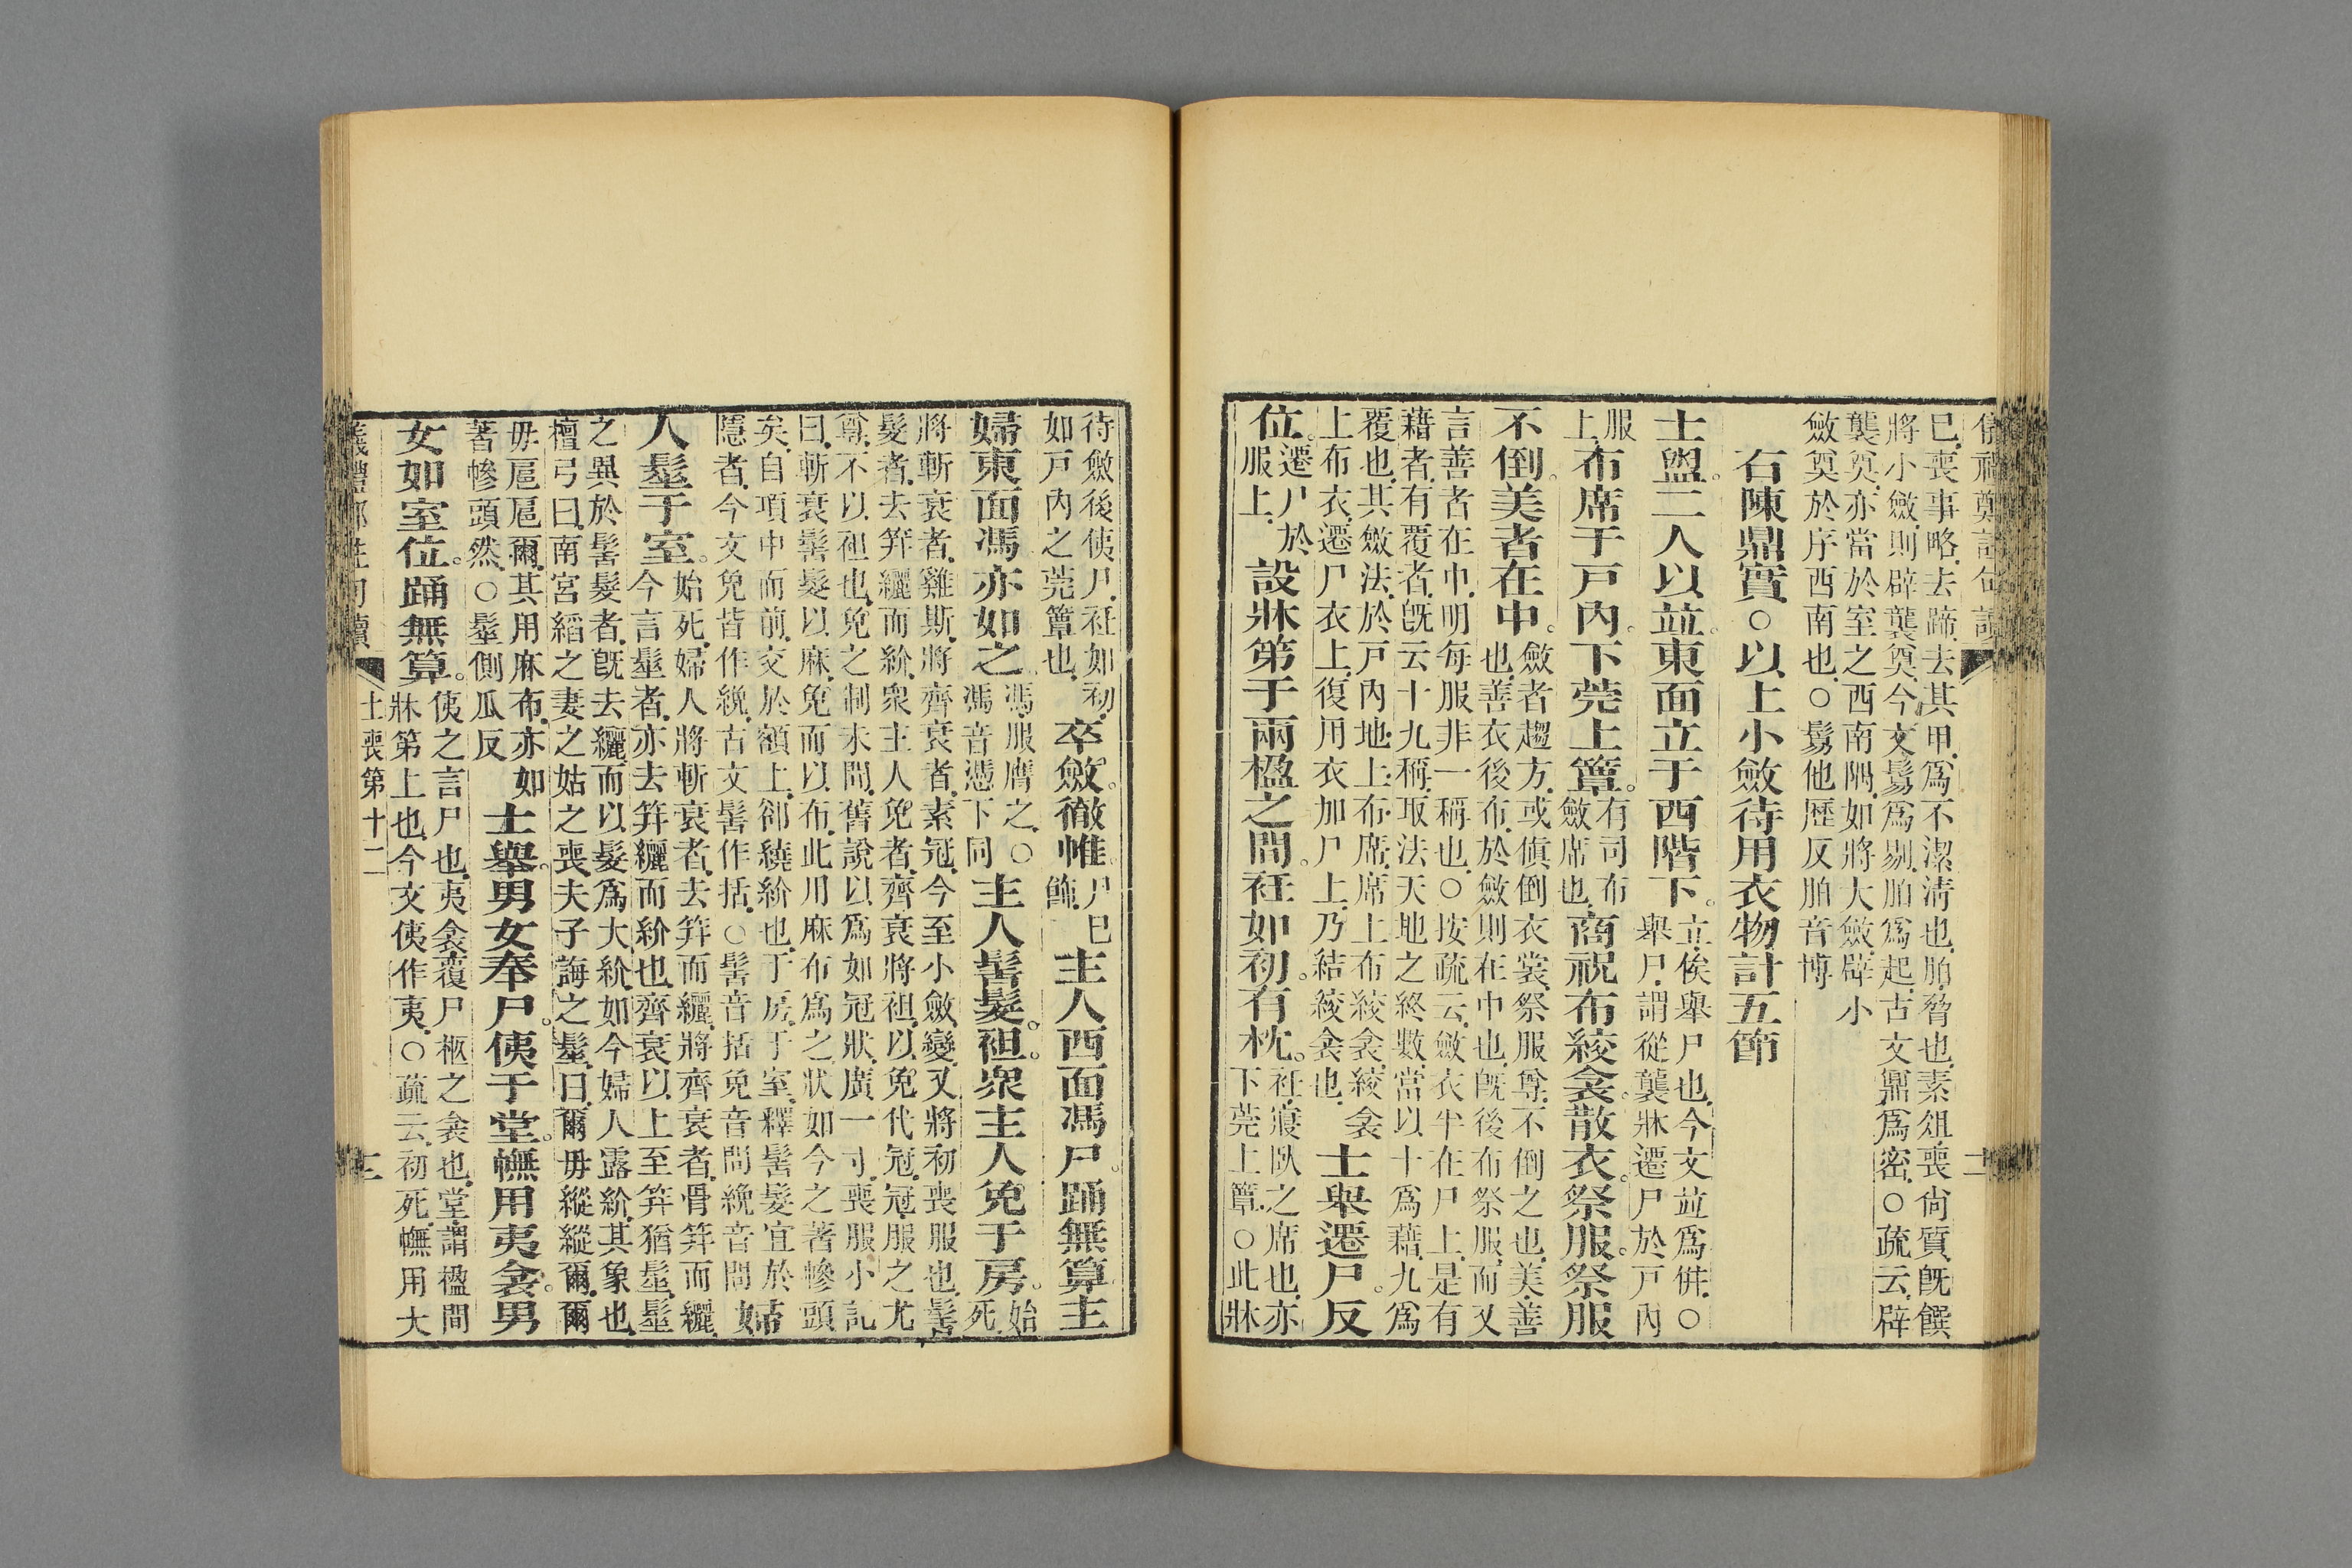 巳喪事略去蹄去其甲爲不潔清也胉脅也素俎喪尙質旣饌
將小斂則辟襲奠今文鬄爲剔胉爲迫古文鼏爲密○疏云辟
襲奠亦當於室之西南隅如將大斂辟小
斂奠於序西南也○鬄他歷反胉音博
右陳鼎實○以上小斂待用衣物計五節
士盥二人以竝東面立于西階下立俟舉尸也今文竝爲併○
舉尸謂從襲牀遷尸於戸內
服上布席于戸內下莞上簟有司布斂席也商祝布絞衾散衣祭服祭服
不倒美者在中斂者趨方或傎倒衣裳祭服尊不倒之也美善
也善衣後布於斂則在中也旣後布祭服而又
言善者在中明每服非一稱也○按疏云斂衣半在尸上是有
藉者有覆者旣云十九稱取法天地之終數當以十爲藉九爲
覆也其斂法於戸內地上布席席上布絞衾絞衾
上布衣遷尸衣上復用衣加尸上乃結絞衾也士舉遷尸反
位遷尸於服上設牀笫于兩楹之閒衽如初有枕衽寢臥之席也亦
下莞上簟○此牀
待斂後侇尸衽如初
如戸內之莞簟也卒斂徹帷尸巳飾主人西面馮尸踊無算主
婦東面馮亦如之馮服膺之○馮音憑下同主人髺髮袒衆主人免于房始死
將斬衰者雞斯將齊衰者素冠今至小斂變又將初喪服也髺
髮者去筓纚而紒衆主人免者齊衰將袒以免代冠冠服之尤
尊不以袒也免之制未聞舊說以爲如冠狀廣一寸喪服小記
曰斬衰髺髮以麻免而以布此用麻布爲之狀如今之著幓頭
矣自項中而前交於額上郤繞紒也于房于室釋髺髮宜於
隱者今文免皆作絻古文髺作括○髺音括免音問絻音問婦
人髽于室始死婦人將斬衰者去筓而纚將齊衰者骨筓而纚
今言髽者亦去筓纚而紒也齊衰以上至筓猶髽髽
之異於髺髮者旣去纚而以髮爲大紒如今婦人露紒其象也
檀弓曰南宮縚之妻之姑之喪夫子誨之髽曰爾毋縱縱爾爾
毋扈扈爾其用麻布亦如
著幓頭然○髽側瓜反士舉男女奉尸侇于堂幠用夷衾男
女如室位踊無算侇之言尸也夷衾覆尸柩之衾也堂謂楹閒
牀笫上也今文侇作夷○疏云初死幠用大
士喪第十二